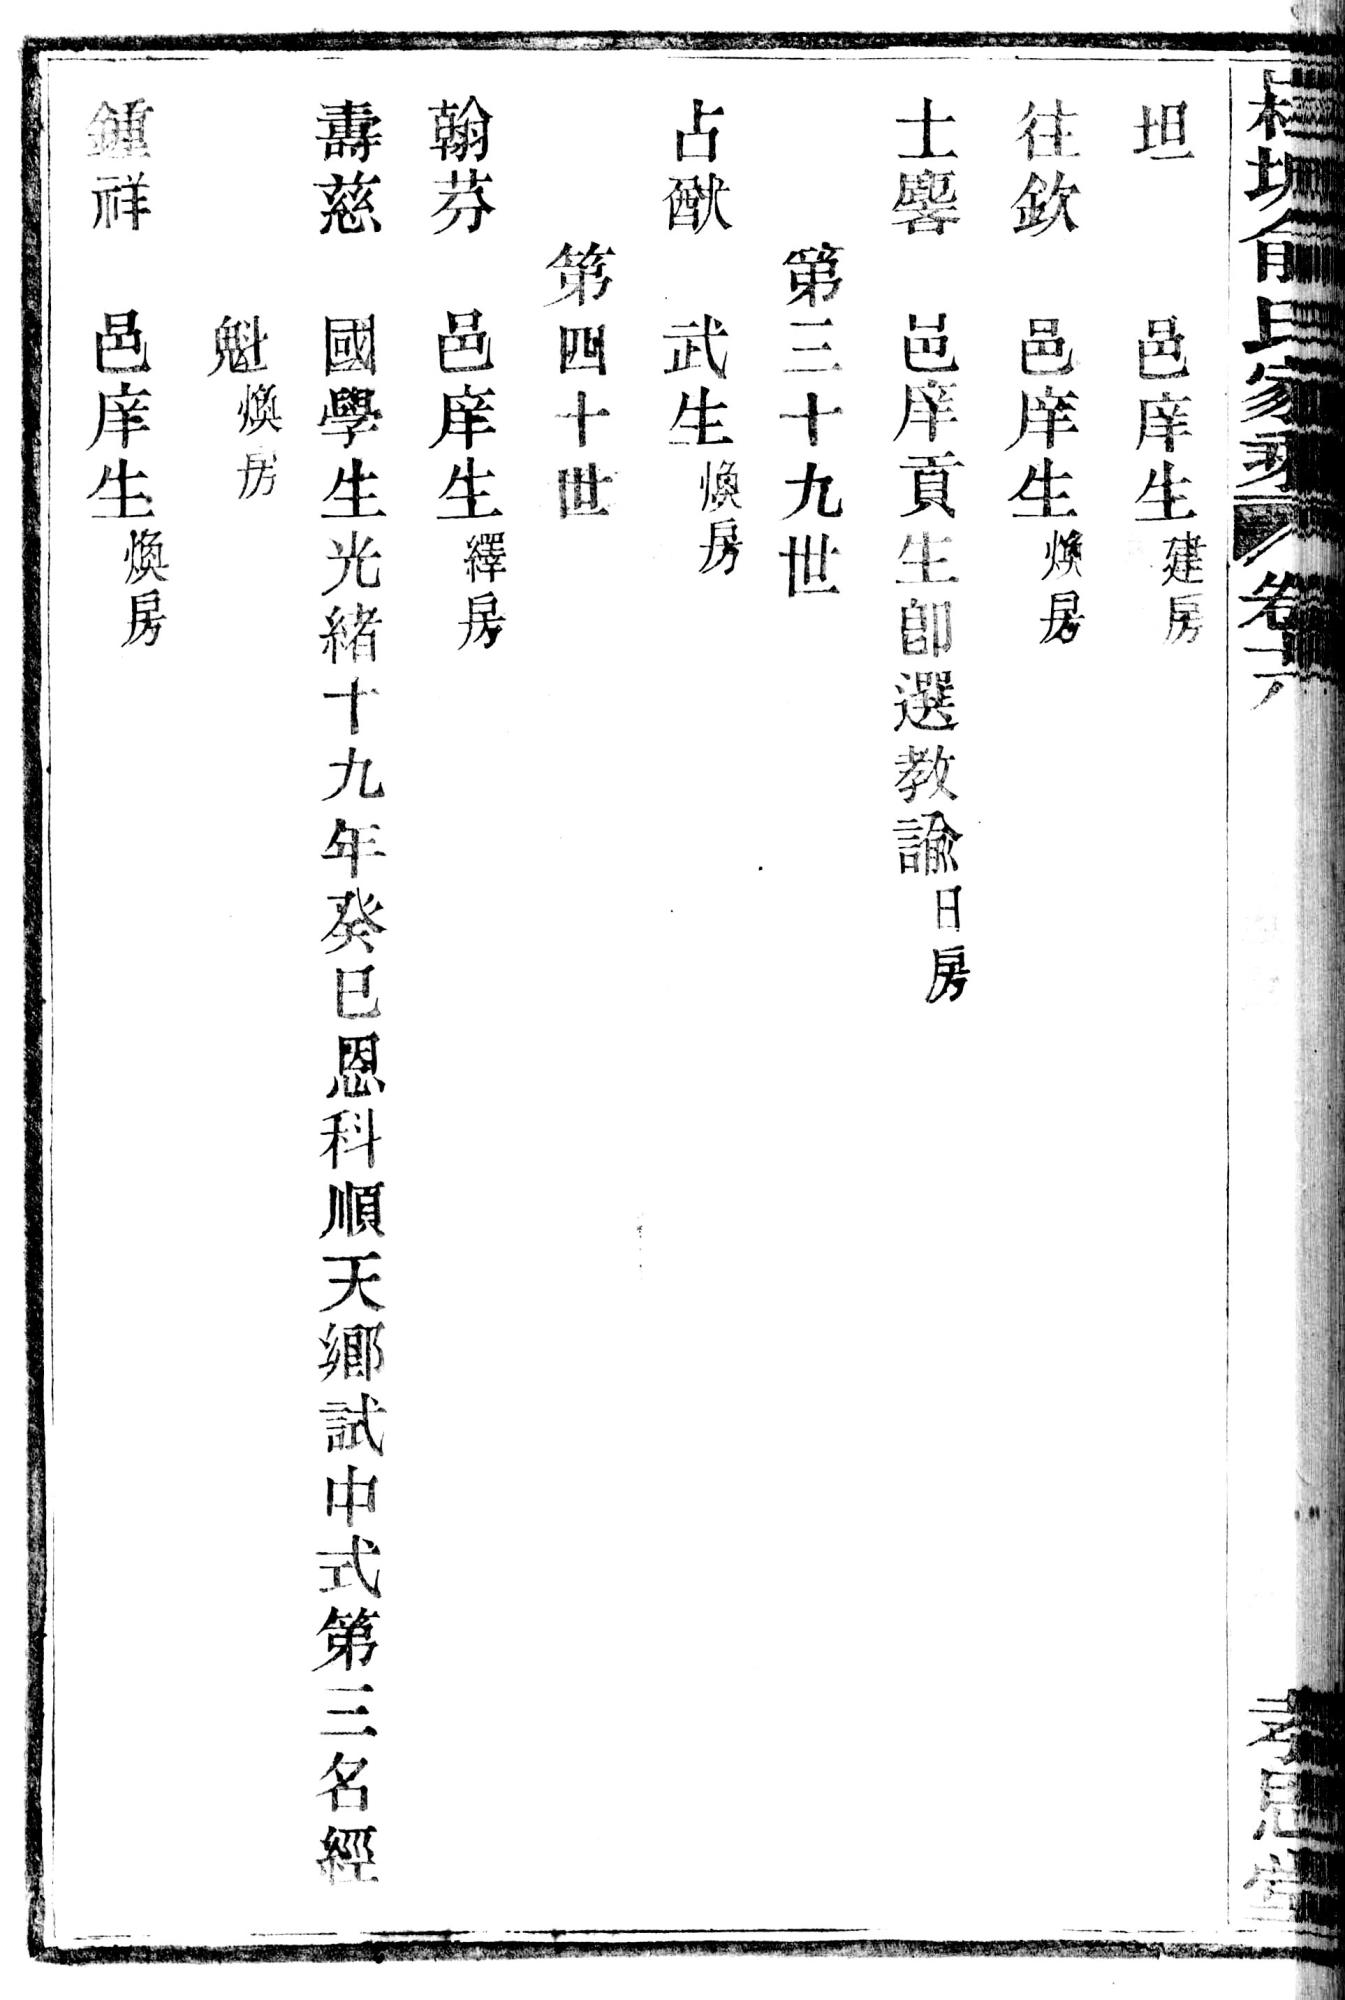 俞氏家乘 卷十六 孝思堂
坦 邑庠生建房
往欽 邑庠生煥房
士麐 邑庠貢生卽選教諭日房
第三十九世
占猷 武生煥房
第四十世
翰芬 邑庠生繹房
壽慈 國學生光緒十九年癸巳恩科順天鄉試中式第三名經
魁煥房
鍾祥 邑庠生煥房